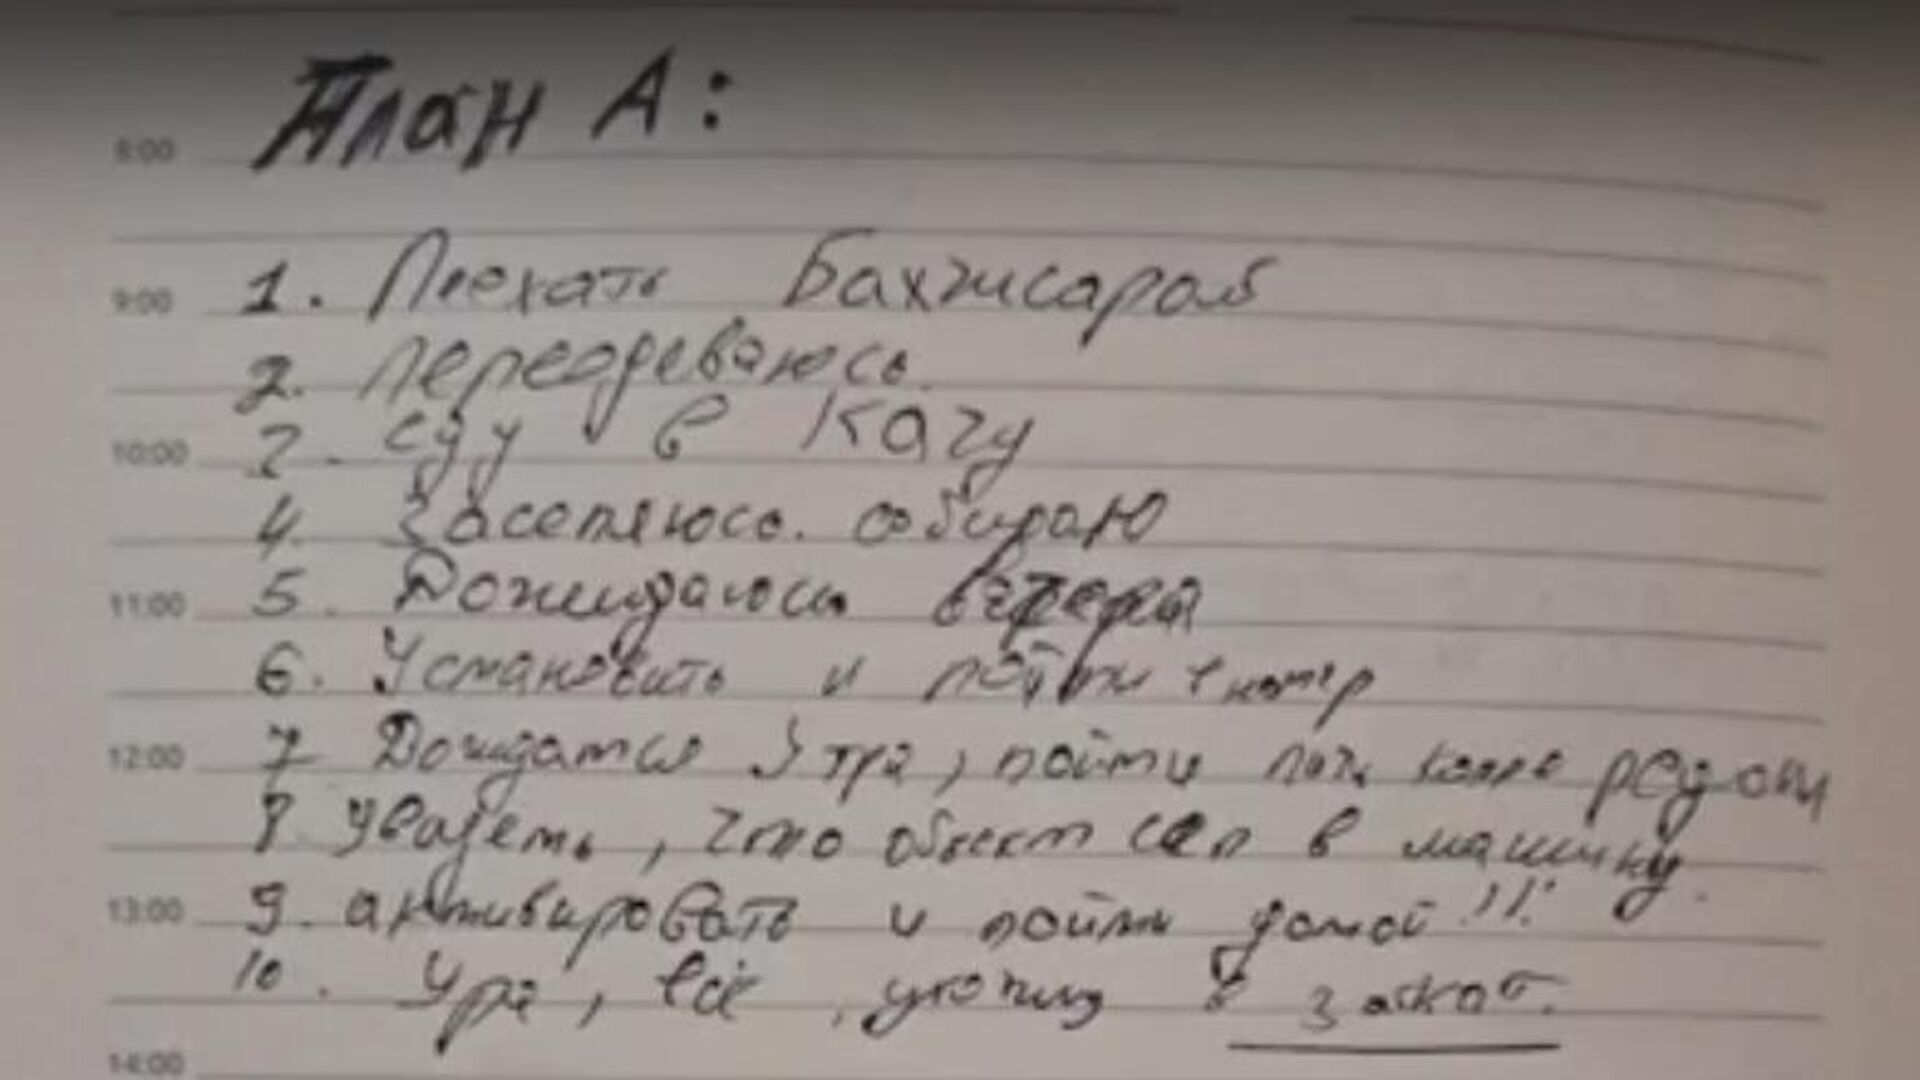 План А:
8:00
9:00 1. Поехать Бахчисарай
2. переодеваюсь.
10:00 3. еду в Качу
4. Заселяюсь. собираю
11:00 5. Дожидаюсь вечера
6. Установить и пойти в номер
12:00 7 Дождатся утра, пойти рядом
8. увидеть, что объект сел в машину.
13:00 9. активировать и пойти домой!!!
10. Ура, всё, ухожу в закат.
14:00